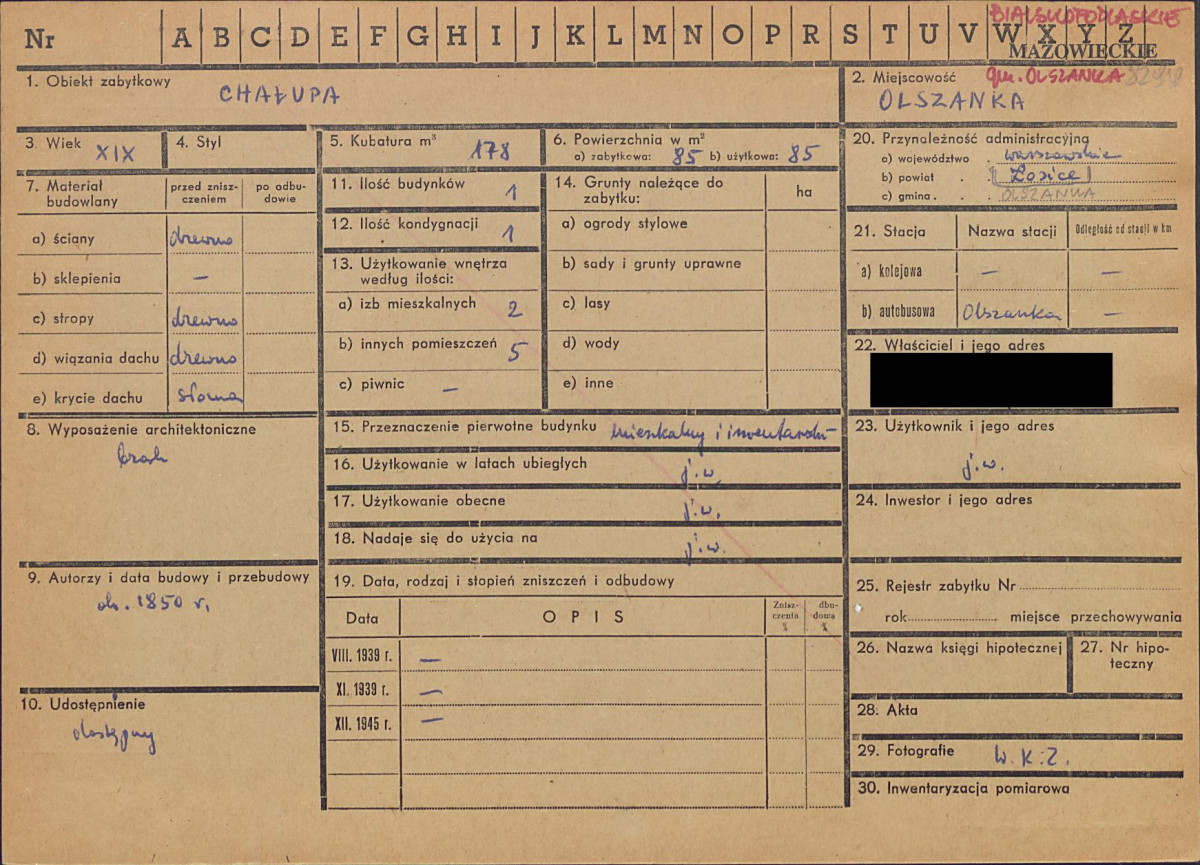 BIALSKOPODLASKIE
Nr A B C D E F G H I J K L M N O P R S T U V W X Y Z
MAZOWIECKIE
1. Obiekt zabytkowy
CHAŁUPA
2. Miejscowość gm. OLSZANKA
OLSZANKA
3. Wiek XIX
4. Styl
5. Kubatura m³ 178
6. Powierzchnia w m²
a) zabytkowa: 85 b) użytkowa: 85
7. Materiał budowlany
przed zniszczeniem
po odbudowie
a) ściany drewno
b) sklepienia —
c) stropy drewno
d) wiązania dachu drewno
e) krycie dachu słoma
8. Wyposażenie architektoniczne
brak
9. Autorzy i data budowy i przebudowy
ok. 1850 r.
10. Udostępnienie
dostępny
11. Ilość budynków 1
12. Ilość kondygnacji 1
13. Użytkowanie wnętrza
według ilości:
a) izb mieszkalnych 2
b) innych pomieszczeń 5
c) piwnic —
14. Grunty należące do
zabytku:
ha
a) ogrody stylowe
b) sady i grunty uprawne
c) lasy
d) wody
e) inne
15. Przeznaczenie pierwotne budynku mieszkalny i inwentarski
16. Użytkowanie w latach ubiegłych j.w.
17. Użytkowanie obecne j.w.
18. Nadaje się do użycia na j.w.
19. Data, rodzaj i stopień zniszczeń i odbudowy
Data OPIS Zniszczenia % dbudowa %
VIII. 1939 r. —
XI. 1939 r. —
XII. 1945 r. —
20. Przynależność administracyjna
a) województwo warszawskie
b) powiat Łosice
c) gmina OLSZANKA
21. Stacja Nazwa stacji Odległość od stacji w km
a) kolejowa — —
b) autobusowa Olszanka —
22. Właściciel i jego adres
23. Użytkownik i jego adres
j.w.
24. Inwestor i jego adres
25. Rejestr zabytku Nr
rok miejsce przechowywania
26. Nazwa księgi hipotecznej
27. Nr hipoteczny
28. Akta
29. Fotografie W.K.Z.
30. Inwentaryzacja pomiarowa